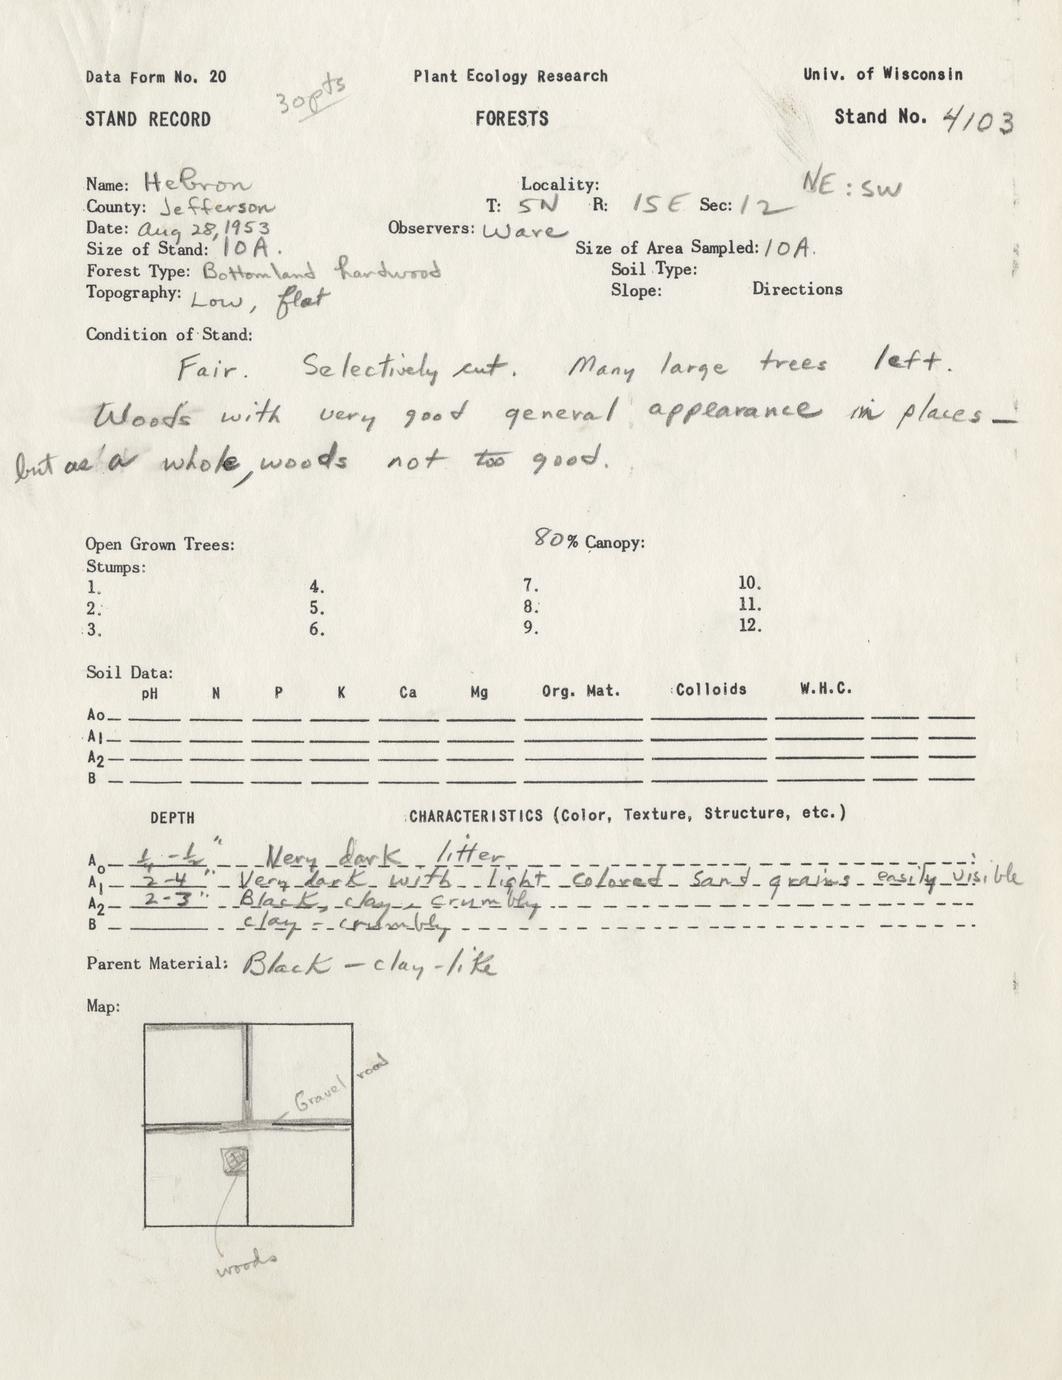 Data Form No. 20 Plant Ecology Research Univ. of Wisconsin
30 pts
STAND RECORD FORESTS Stand No. 4103
NE : SW
Name: Hebron Locality:
County: Jefferson T: 5N R: 15E Sec: 12
Date: Aug 28, 1953 Observers: Ware
Size of Stand: 10A. Size of Area Sampled: 10A.
Forest Type: Bottomland hardwood Soil Type:
Topography: Low, flat Slope: Directions
Condition of Stand:
Fair. Selectively cut. Many large trees left.
Woods with very good general appearance in places —
but as a whole, woods not too good.
Open Grown Trees: 80% Canopy:
Stumps:
1. 4. 7. 10.
2. 5. 8. 11.
3. 6. 9. 12.
Soil Data:
pH N P K Ca Mg Org. Mat. Colloids W.H.C.
Ao
A1
A2
B
DEPTH CHARACTERISTICS (Color, Texture, Structure, etc.)
Ao 1/4 - 1/2" Very dark litter
A1 2-4" Very dark with light colored sand grains easily visible
A2 2-3" Black, clay - crumbly
B clay - crumbly
Parent Material: Black - clay-like
Map:
Gravel road
woods